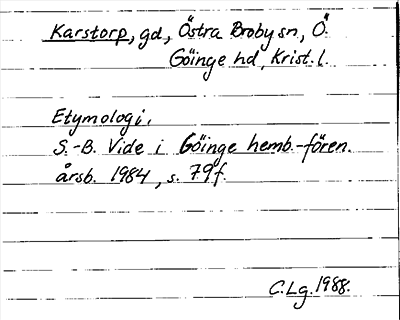 Karstorp, gd, Östra Broby sn, Ö.
Göinge hd, Krist. l.
Etymologi.
S.-B. Vide i Göinge hemb.-fören.
årsb. 1984, s. 79f.
C.Lg. 1988.